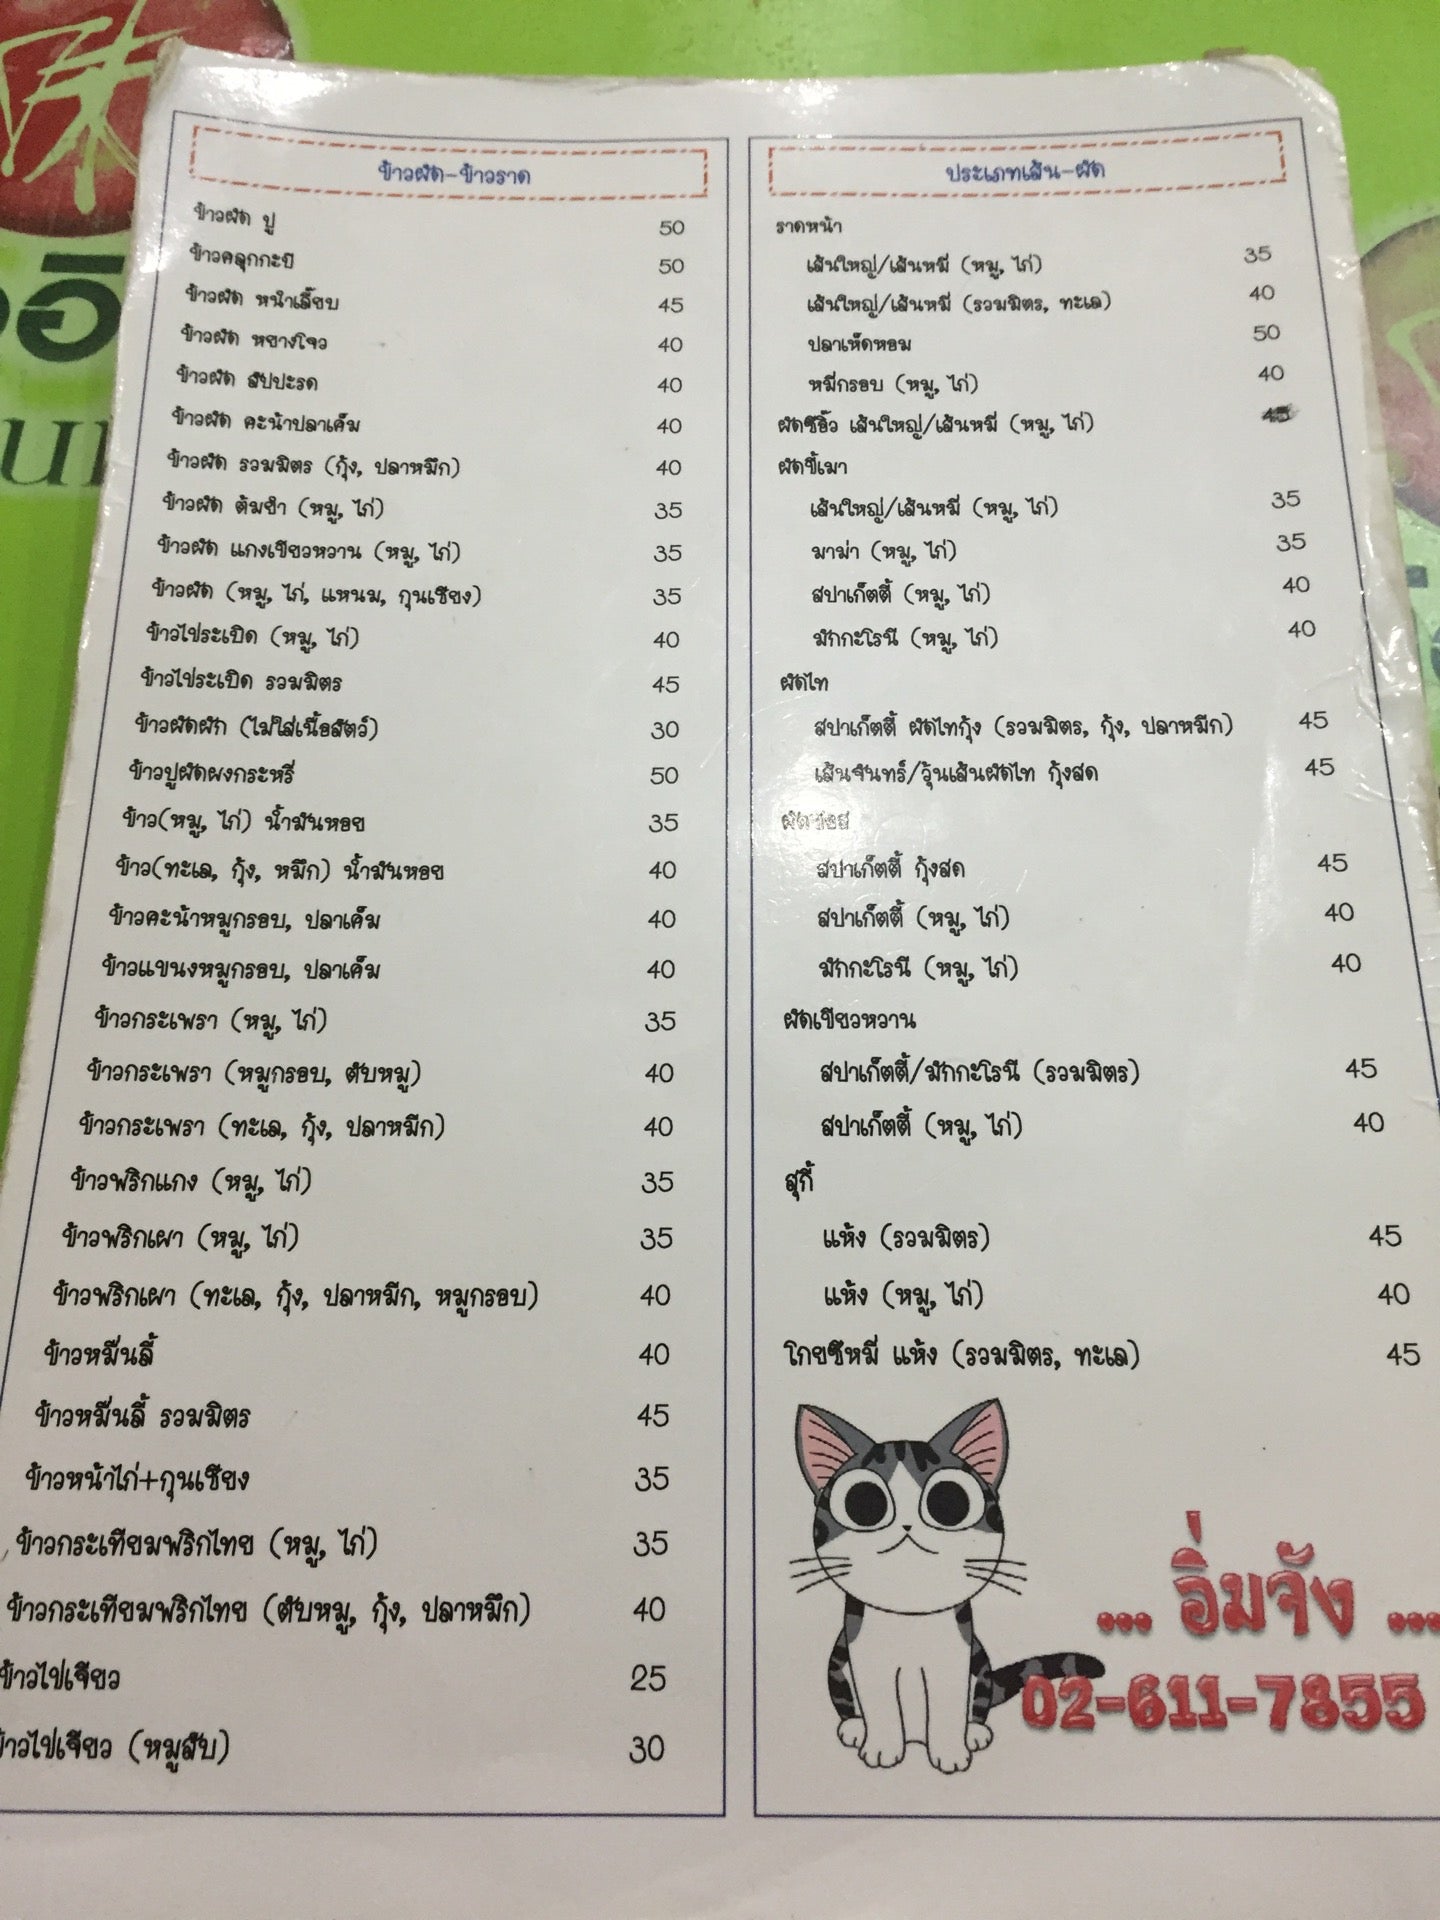 ข้าวผัด-ข้าวราด
ข้าวผัด ปู 50
ข้าวคลุกกะปิ 50
ข้าวผัด หนำเลี๊ยบ 45
ข้าวผัด หยางโจว 40
ข้าวผัด สัปปะรด 40
ข้าวผัด คะน้าปลาเค็ม 40
ข้าวผัด รวมมิตร (กุ้ง, ปลาหมึก) 40
ข้าวผัด ต้มยำ (หมู, ไก่) 35
ข้าวผัด แกงเขียวหวาน (หมู, ไก่) 35
ข้าวผัด (หมู, ไก่, แหนม, กุนเชียง) 35
ข้าวไข่ระเบิด (หมู, ไก่) 40
ข้าวไข่ระเบิด รวมมิตร 45
ข้าวผัดผัก (ไม่ใส่เนื้อสัตว์) 30
ข้าวปูผัดผงกระหรี่ 50
ข้าว(หมู, ไก่) น้ำมันหอย 35
ข้าว(ทะเล, กุ้ง, หมึก) น้ำมันหอย 40
ข้าวคะน้าหมูกรอบ, ปลาเค็ม 40
ข้าวแขนงหมูกรอบ, ปลาเค็ม 40
ข้าวกระเพรา (หมู, ไก่) 35
ข้าวกระเพรา (หมูกรอบ, ตับหมู) 40
ข้าวกระเพรา (ทะเล, กุ้ง, ปลาหมึก) 40
ข้าวพริกแกง (หมู, ไก่) 35
ข้าวพริกเผา (หมู, ไก่) 35
ข้าวพริกเผา (ทะเล, กุ้ง, ปลาหมึก, หมูกรอบ) 40
ข้าวหมื่นลี้ 40
ข้าวหมื่นลี้ รวมมิตร 45
ข้าวหน้าไก่+กุนเชียง 35
ข้าวกระเทียมพริกไทย (หมู, ไก่) 35
ข้าวกระเทียมพริกไทย (ตับหมู, กุ้ง, ปลาหมึก) 40
ข้าวไข่เจียว 25
ข้าวไข่เจียว (หมูสับ) 30
ประเภทเส้น-ผัด
ราดหน้า
เส้นใหญ่/เส้นหมี่ (หมู, ไก่) 35
เส้นใหญ่/เส้นหมี่ (รวมมิตร, ทะเล) 40
ปลาเห็ดหอม 50
หมี่กรอบ (หมู, ไก่) 40
ผัดซีอิ๊ว เส้นใหญ่/เส้นหมี่ (หมู, ไก่)
ผัดขี้เมา
เส้นใหญ่/เส้นหมี่ (หมู, ไก่) 35
มาม่า (หมู, ไก่) 35
สปาเก็ตตี้ (หมู, ไก่) 40
มักกะโรนี (หมู, ไก่) 40
ผัดไท
สปาเก็ตตี้ ผัดไทกุ้ง (รวมมิตร, กุ้ง, ปลาหมึก) 45
เส้นจันทร์/วุ้นเส้นผัดไท กุ้งสด 45
ผัดซอส
สปาเก็ตตี้ กุ้งสด 45
สปาเก็ตตี้ (หมู, ไก่) 40
มักกะโรนี (หมู, ไก่) 40
ผัดเขียวหวาน
สปาเก็ตตี้/มักกะโรนี (รวมมิตร) 45
สปาเก็ตตี้ (หมู, ไก่) 40
สุกี้
แห้ง (รวมมิตร) 45
แห้ง (หมู, ไก่) 40
โกยซีหมี่ แห้ง (รวมมิตร, ทะเล) 45
... อิ่มจัง ...
02-611-7855